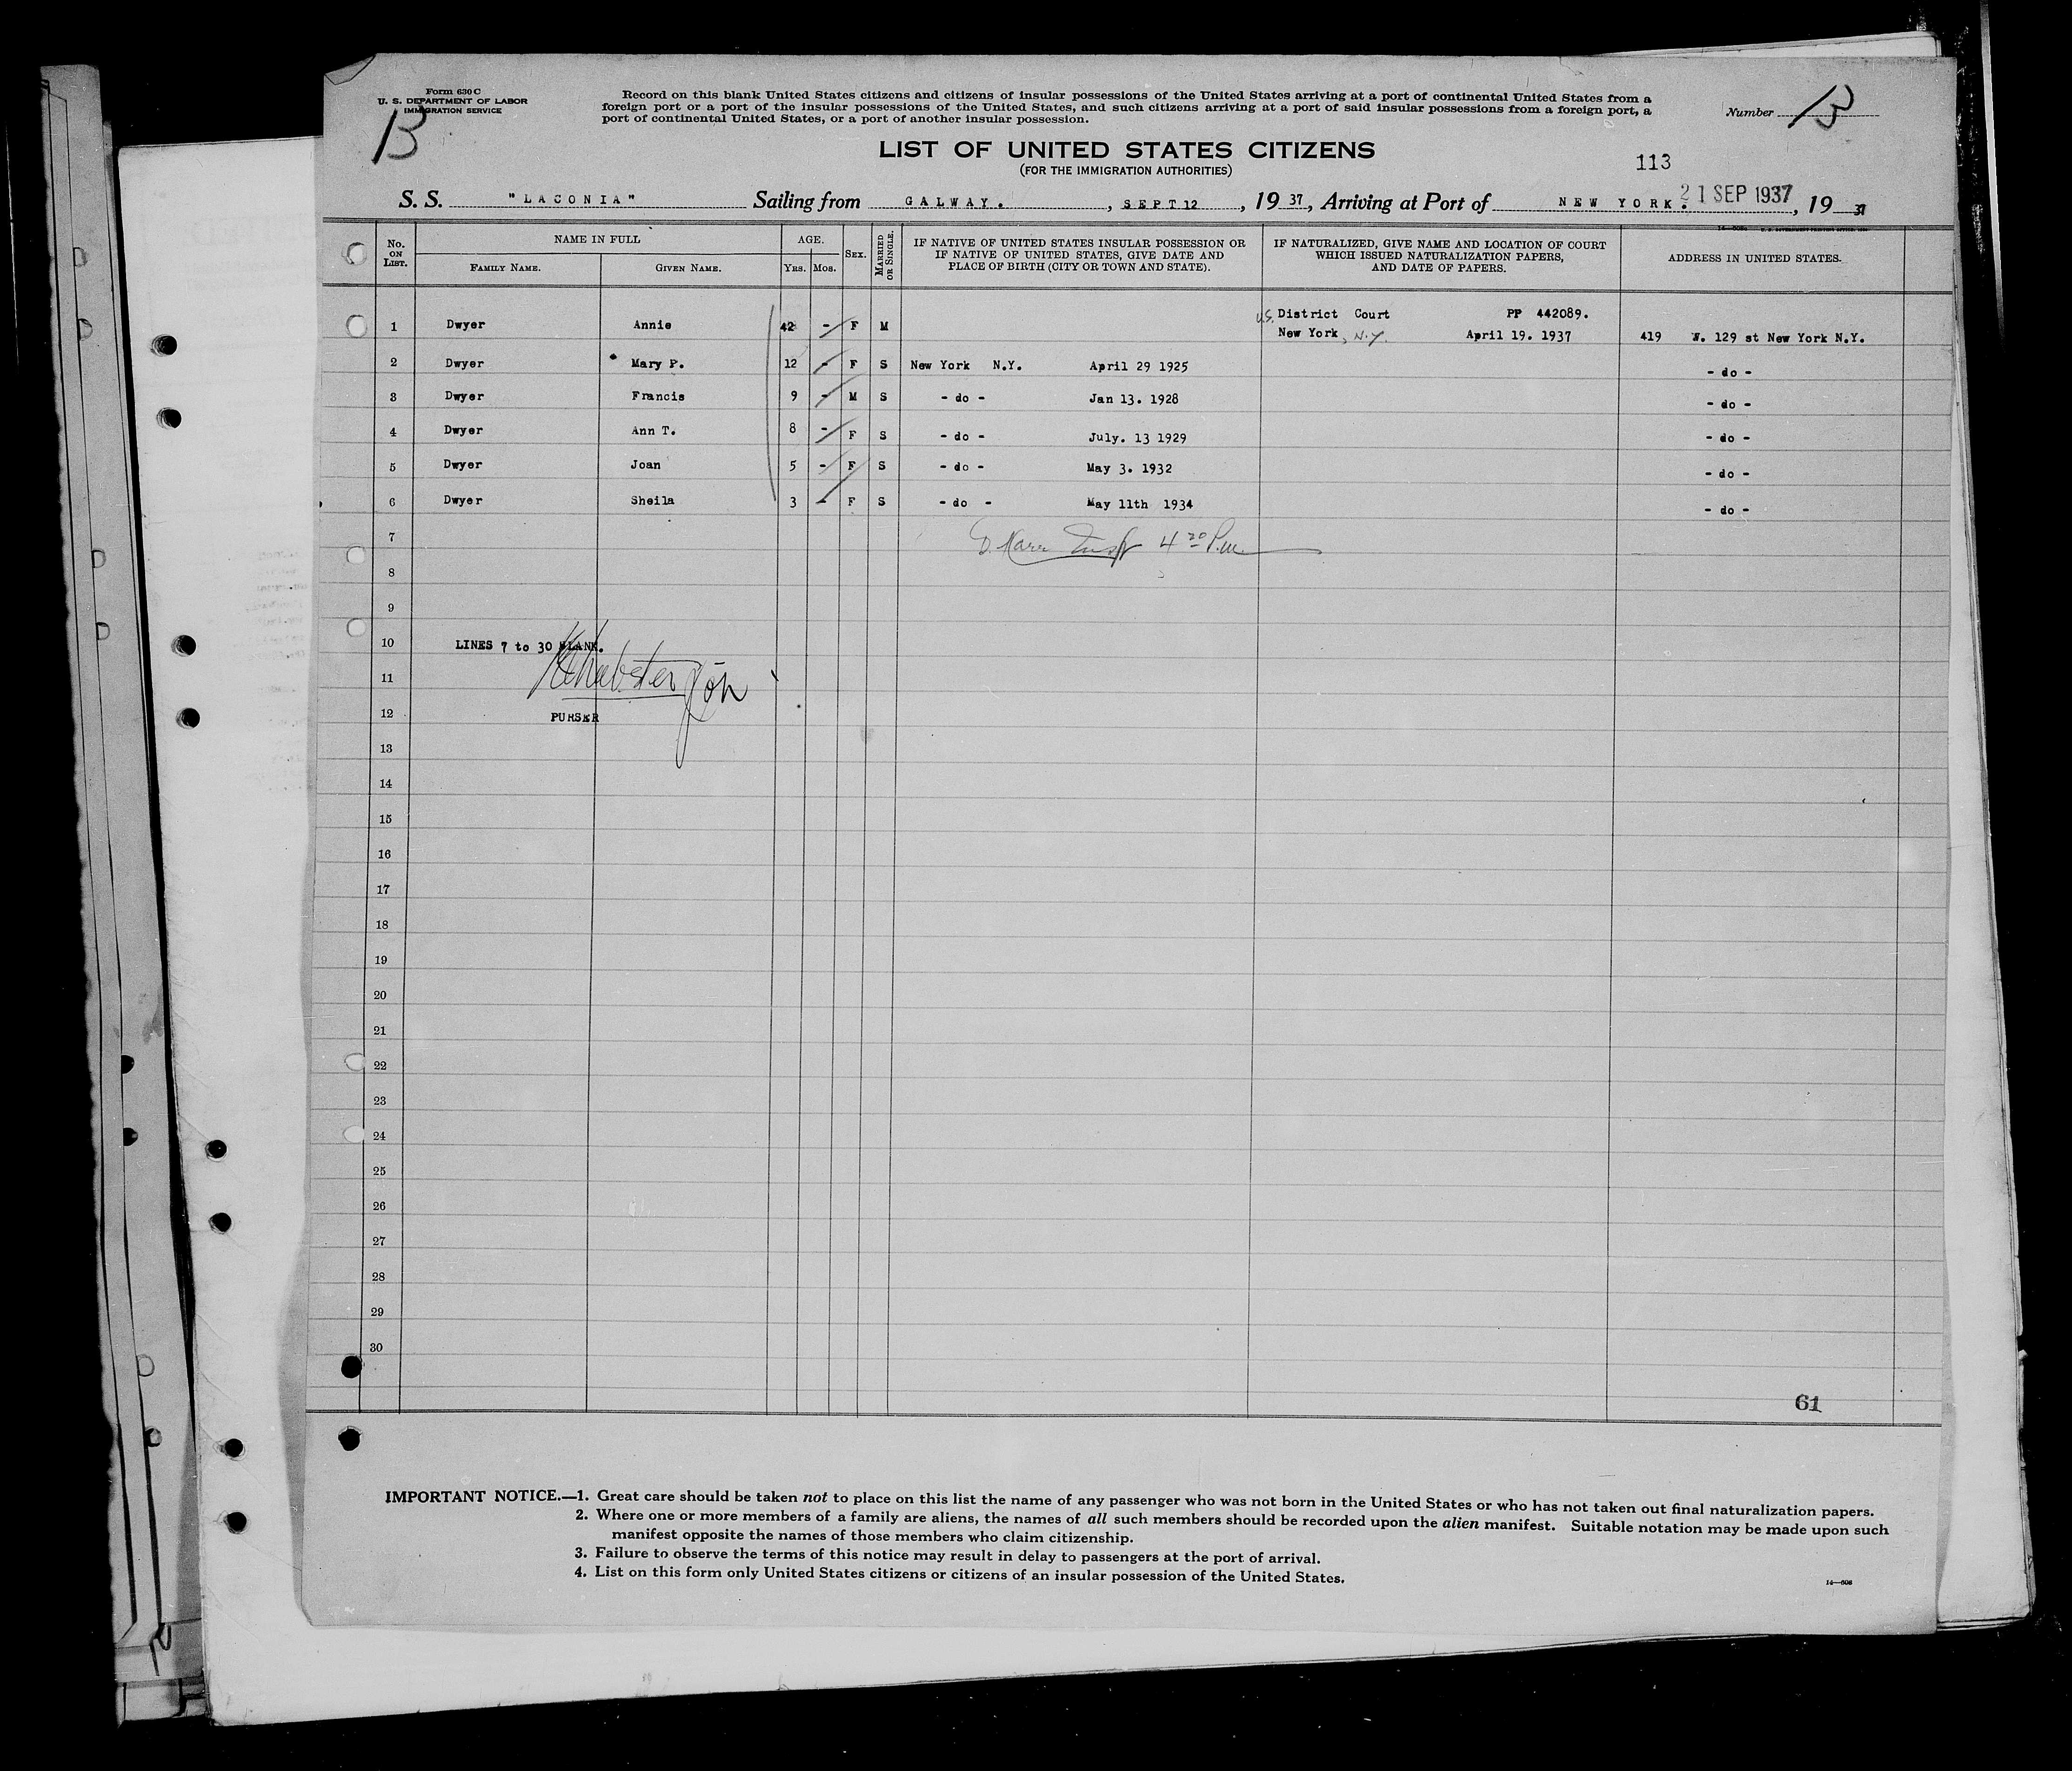 Form 630 C
U. S. DEPARTMENT OF LABOR
IMMIGRATION SERVICE
Record on this blank United States citizens and citizens of insular possessions of the United States arriving at a port of continental United States from a
foreign port or a port of the insular possessions of the United States, and such citizens arriving at a port of said insular possessions from a foreign port, a
port of continental United States, or a port of another insular possession.
Number
LIST OF UNITED STATES CITIZENS
(FOR THE IMMIGRATION AUTHORITIES)
113
S. S. "LACONIA" Sailing from GALWAY. , SEPT 12 , 19 37, Arriving at Port of NEW YORK. 21 SEP 1937, 19 37
No. ON LIST. NAME IN FULL FAMILY NAME. GIVEN NAME. AGE. YRS. MOS. SEX. MARRIED OR SINGLE. IF NATIVE OF UNITED STATES INSULAR POSSESSION OR IF NATIVE OF UNITED STATES, GIVE DATE AND PLACE OF BIRTH (CITY OR TOWN AND STATE). IF NATURALIZED, GIVE NAME AND LOCATION OF COURT WHICH ISSUED NATURALIZATION PAPERS, AND DATE OF PAPERS. ADDRESS IN UNITED STATES.
U.S. District Court PP 442089.
1 Dwyer Annie 42 - F M New York, N.Y. April 19. 1937 419 W. 129 st New York N.Y.
2 Dwyer Mary P. 12 - F S New York N.Y. April 29 1925 - do -
3 Dwyer Francis 9 - M S - do - Jan 13. 1928 - do -
4 Dwyer Ann T. 8 - F S - do - July. 13 1929 - do -
5 Dwyer Joan 5 - F S - do - May 3. 1932 - do -
6 Dwyer Sheila 3 - F S - do - May 11th 1934 - do -
7
8
9
10 LINES 7 to 30 BLANK.
11
12 PURSER
13
14
15
16
17
18
19
20
21
22
23
24
25
26
27
28
29
30
61
IMPORTANT NOTICE.—1. Great care should be taken not to place on this list the name of any passenger who was not born in the United States or who has not taken out final naturalization papers.
2. Where one or more members of a family are aliens, the names of all such members should be recorded upon the alien manifest. Suitable notation may be made upon such
manifest opposite the names of those members who claim citizenship.
3. Failure to observe the terms of this notice may result in delay to passengers at the port of arrival.
4. List on this form only United States citizens or citizens of an insular possession of the United States.
14—608